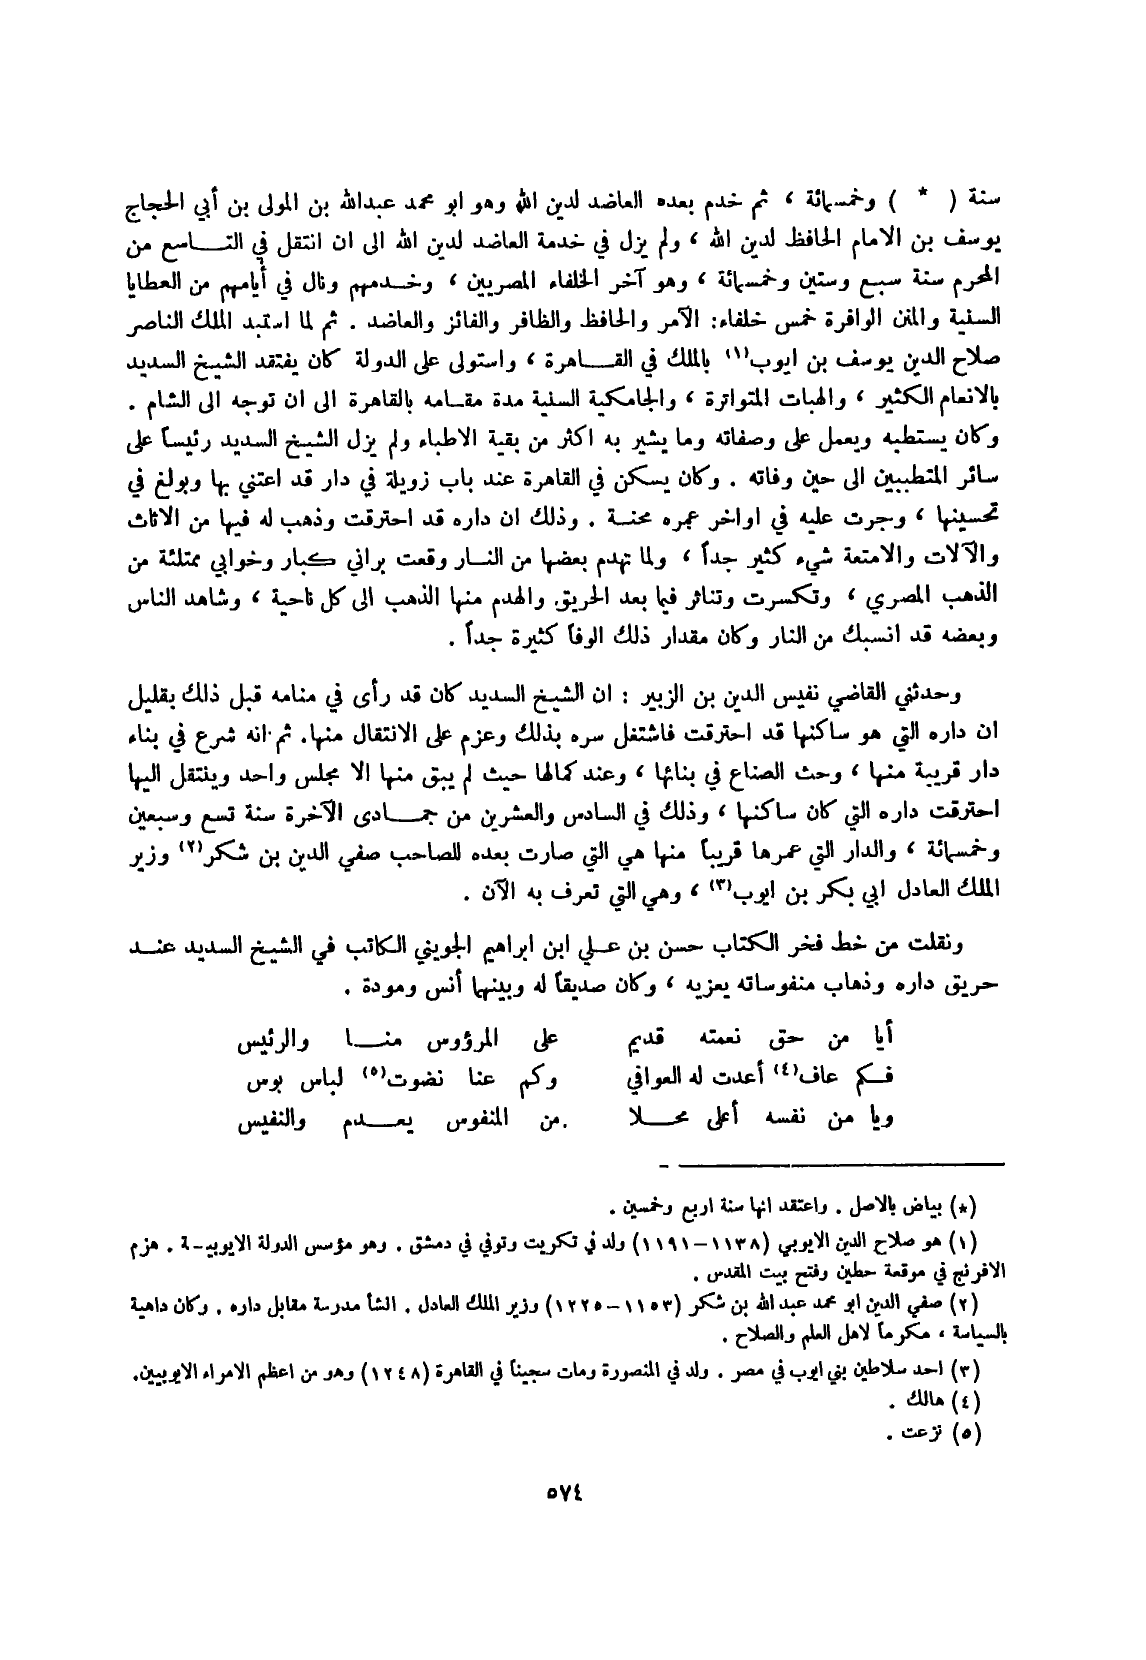 سنة ( * ) وخمسمائة ، ثم خدم بعده العاضد لدين الله وهو ابو محمد عبدالله بن المولى بن أبي الحجاج
يوسف بن الامام الحافظ لدين الله ، ولم يزل في خدمة العاضد لدين الله الى ان انتقل في التاسع من
المحرم سنة سبع وستين وخمسمائة ، وهو آخر الخلفاء المصريين ، وخدمهم ونال في أيامهم من العطايا
السنية والمنن الوافرة خمس خلفاء: الآمر والحافظ والظافر والفائز والعاضد . ثم لما استبد الملك الناصر
صلاح الدين يوسف بن ايوب(١) بالملك في القاهرة ، واستولى على الدولة كان يفتقد الشيخ السديد
بالانعام الكثير ، والهبات المتواترة ، والجامكية السنية مدة مقامه بالقاهرة الى ان توجه الى الشام .
وكان يستطبه ويعمل على وصفاته وما يشير به اكثر من بقية الاطباء ولم يزل الشيخ السديد رئيساً على
سائر المتطببين الى حين وفاته . وكان يسكن في القاهرة عند باب زويلة في دار قد اعتني بها وبولغ في
تحسينها ، وجرت عليه في اواخر عمره محنة . وذلك ان داره قد احترقت وذهب له فيها من الاثاث
والآلات والامتعة شيء كثير جداً ، ولما تهدم بعضها من النار وقعت براني كبار وخوابي ممتلئة من
الذهب المصري ، وتكسرت وتناثر فيما بعد الحريق والهدم منها الذهب الى كل ناحية ، وشاهد الناس
وبعضه قد انسبك من النار وكان مقدار ذلك الوفاً كثيرة جداً .
وحدثني القاضي نفيس الدين بن الزبير : ان الشيخ السديد كان قد رأى في منامه قبل ذلك بقليل
ان داره التي هو ساكنها قد احترقت فاشتغل سره بذلك وعزم على الانتقال منها. ثم انه شرع في بناء
دار قريبة منها ، وحث الصناع في بنائها ، وعند كمالها حيث لم يبق منها الا مجلس واحد وينتقل اليها
احترقت داره التي كان ساكنها ، وذلك في السادس والعشرين من جمادى الآخرة سنة تسع وسبعين
وخمسمائة ، والدار التي عمرها قريباً منها هي التي صارت بعده للصاحب صفي الدين بن شكر(٢) وزير
الملك العادل ابي بكر بن ايوب(٣) ، وهي التي تعرف به الآن .
ونقلت من خط فخر الكتاب حسن بن علي ابن ابراهيم الجويني الكاتب في الشيخ السديد عند
حريق داره وذهاب منفوساته يعزيه ، وكان صديقاً له وبينهما أنس ومودة .
أيا من حق نعمته قديم على المرؤوس منا والرئيس
فكم عاف(٤) أعدت له العوافي وكم عنا نضوت(٥) لباس بوس
ويا من نفسه أعلى محلا من المنفوس يعدم والنفيس
(*) بياض بالاصل . واعتقد انها سنة اربع وخمسين .
(١) هو صلاح الدين الايوبي (١١٣٨–١١٩١) ولد في تكريت وتوفي في دمشق . وهو مؤسس الدولة الايوبية . هزم
الافرنج في موقعة حطين وفتح بيت المقدس .
(٢) صفي الدين ابو محمد عبد الله بن شكر (١١٥٣–١٢٢٥) وزير الملك العادل . انشأ مدرسة مقابل داره . وكان داهية
بالسياسة ، مكرماً لاهل العلم والصلاح .
(٣) احد سلاطين بني ايوب في مصر . ولد في المنصورة ومات سجيناً في القاهرة (١٢٤٨) وهو من اعظم الامراء الايوبيين.
(٤) هالك .
(٥) نزعت .
٥٧٤